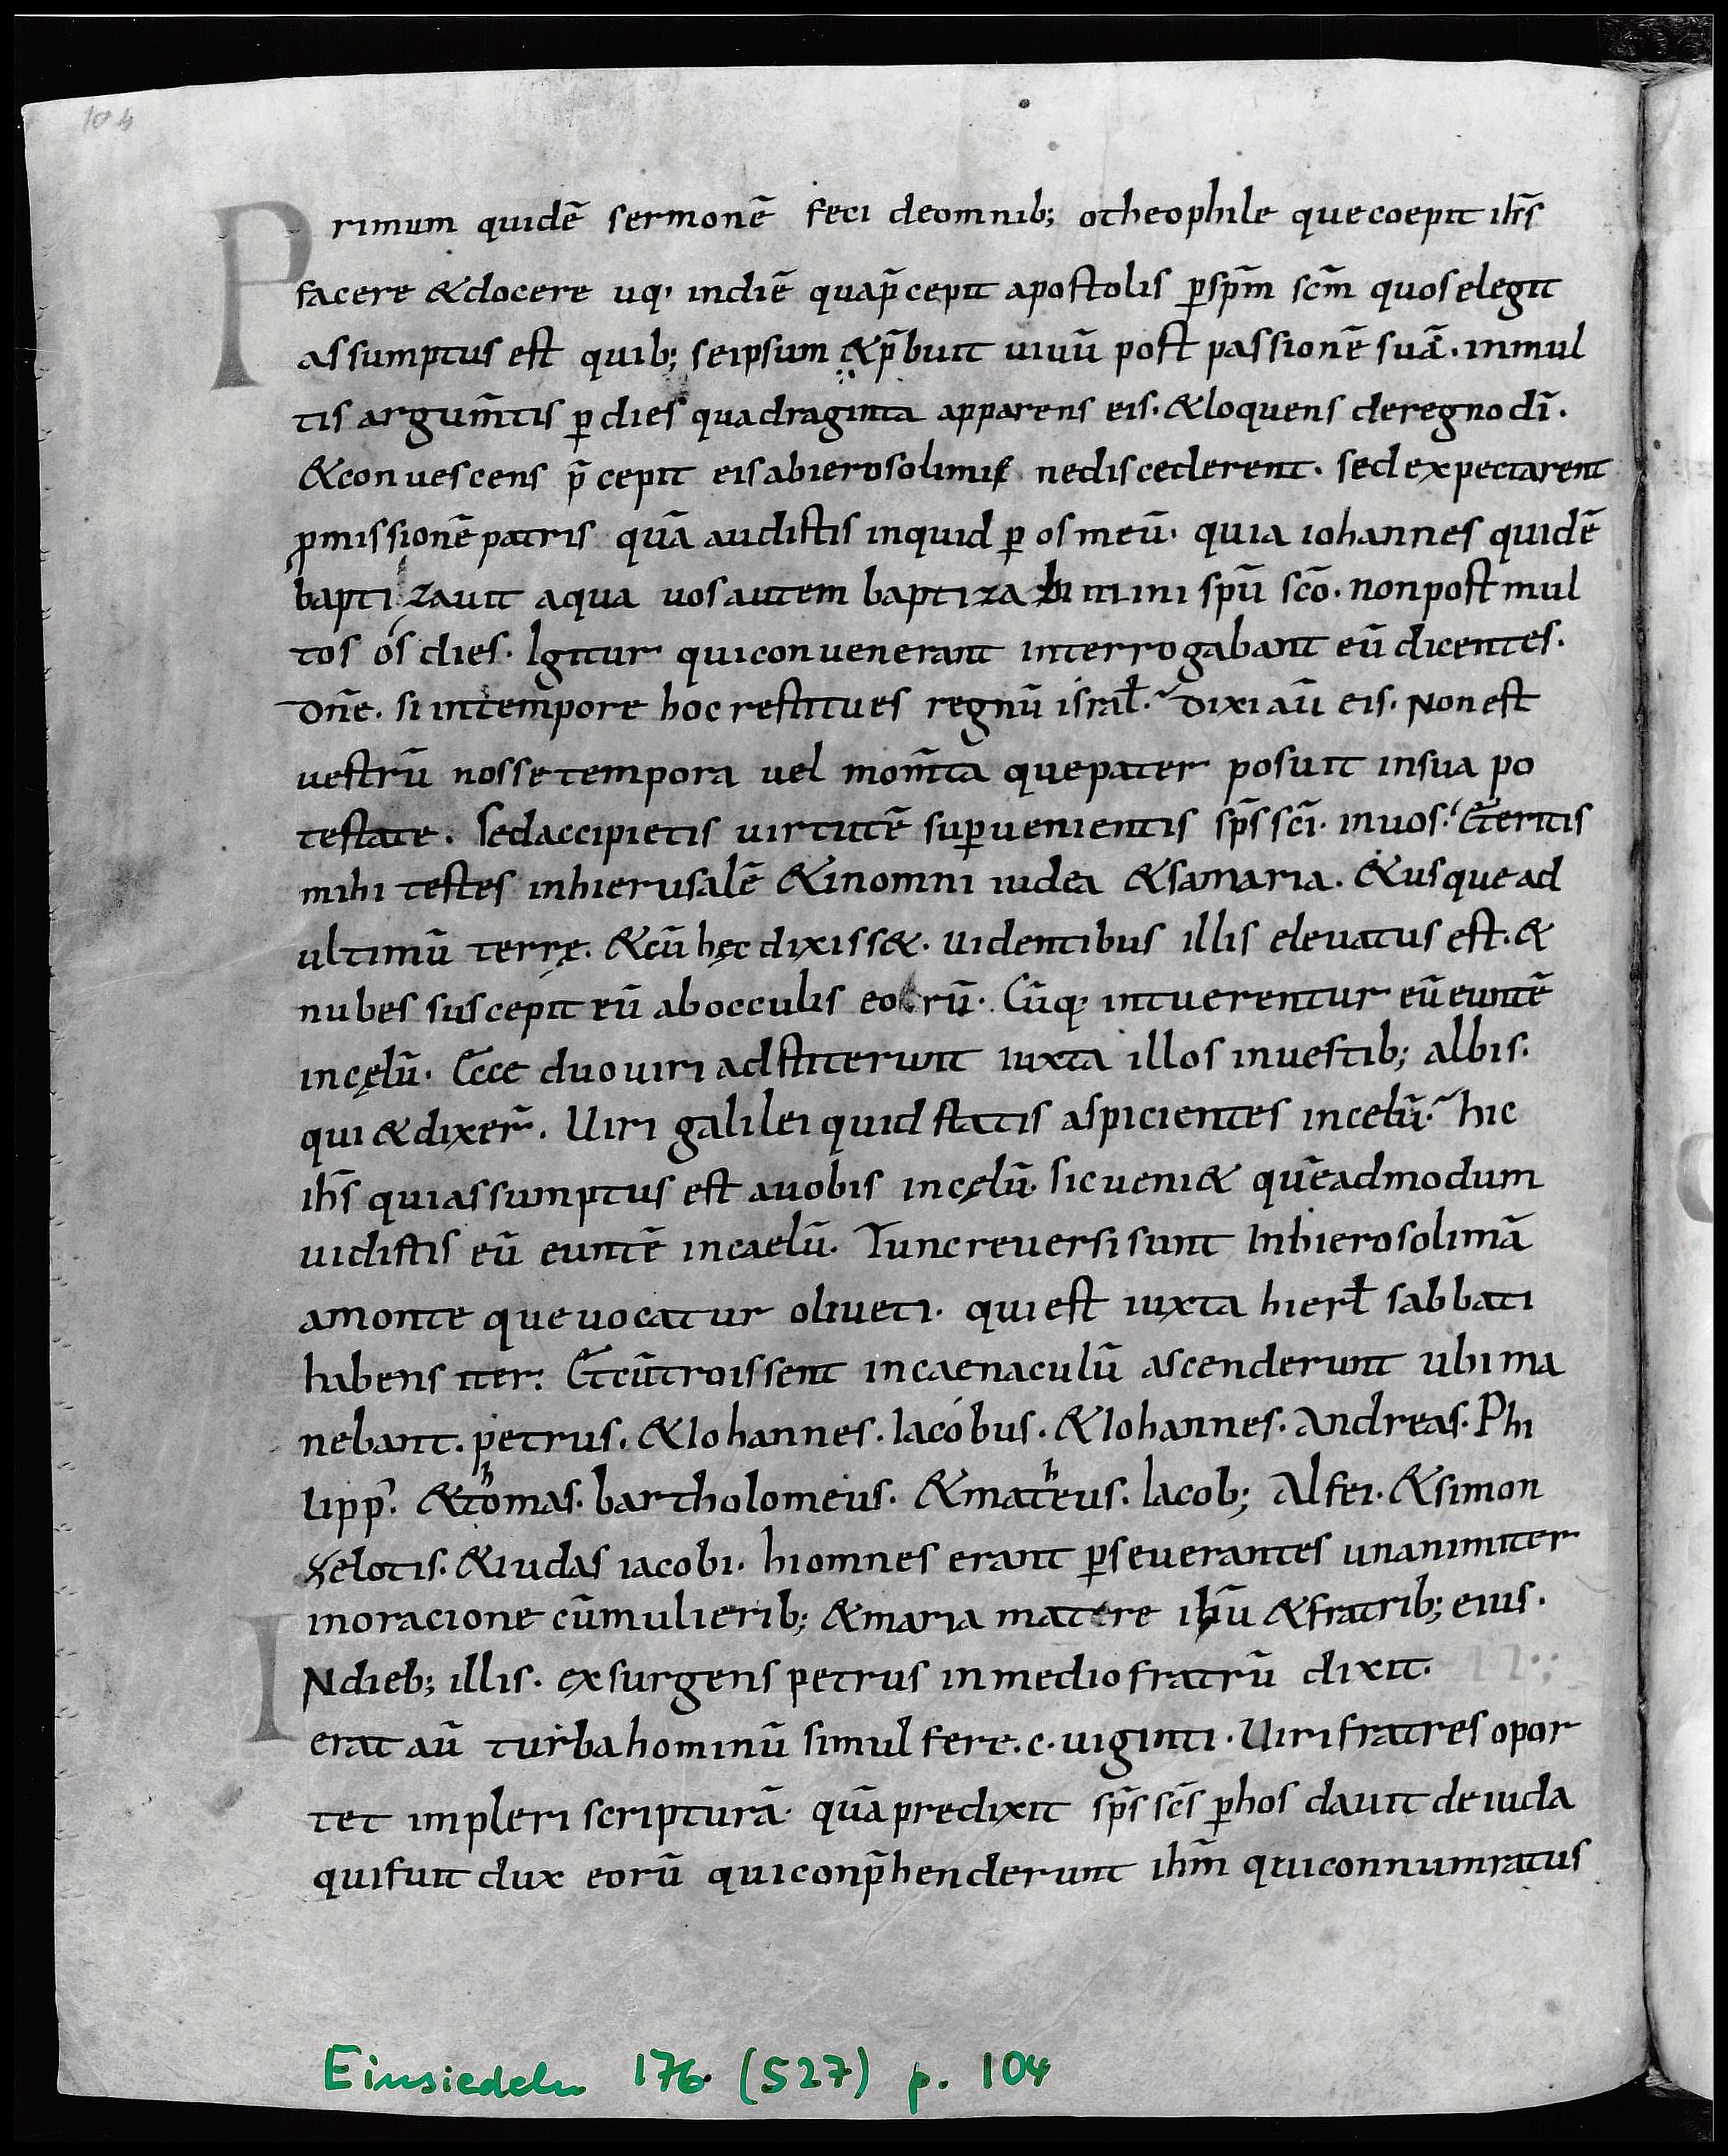 104
Primum quidē sermonē feci deomnib; otheophile quecoepit ihs̄
facere &docere usq; indiē quap̄cepit apostolis ꝑsp̄m sc̄m quoselegit
assumptus est quib; seipsum &p̄buit uiuū post passionē suā. inmul
tis argum̄tis ꝑ dies quadraginta apparens eis. &loquens deregnodī.
&conuescens p̄cepit eisabierosolimis nediscederent. sedexpectarent
ꝓmissionēpatris quā audistis inquid ꝑ osmeū. quia iohannes quidē
baptizauit aqua uosautem baptizabimini spū scō. nonpostmul
tos os dies. Igitur quiconuenerant interrogabant eū dicentes.
Dn̄e. si intempore hoc restitues regnū israł. Dixi aū eis. Nonest
uestrū nosse tempora uel mom̄ta quepater posuit insua po
testate. Sedaccipietis uirtutē suꝑuenientis sp̄s scī. inuos. Eteritis
mihi testes inhierusalē &inomni iudea &samaria. &usquead
ultimū terrę. &cū hęc dixiss&. uidentibus illis eleuatus est. &
nubes suscepit eū abocculis eorū. Cūq; intuerentur eū euntē
incęlū. Ecce duouiri adstiterunt iuxta illos inuestib; albis.
qui &dixer̄. Uiri galilei quid statis aspicientes incelū. hic
ihs̄ quiassumptus est auobis incęlū. sic ueni& quēadmodum
uidistis eū euntē incaelū. Tuncreuersisunt Inhierosolimā
amonte queuocatur oliueti. quiest iuxta hierł sabbati
habens iter. Etcūtroissent incaenaculū ascenderunt ubima
nebant. petrus. &Iohannes. Iacobus. &Iohannes. Andreas. Phi
lipp'. &thomas. bartholomeus. &matheus. Iacob; Alfei. &simon
zelotis. &iudas iacobi. hiomnes erant ꝑseuerantes unanimiter
inoracione cūmulierib; &maria matere ihū &fratrib; eius.
INdieb; illis. exsurgens petrus inmediofratrū dixit.
erat aū turbahominū simul fere. c. uiginti. Uirifratres opor
tet impleri scripturā. quāpredixit sp̄s sc̄s ꝑhos dauit deiuda
quifuit dux eorū quiconp̄henderunt ihm̄ quiconnumratus
Einsiedeln 176 (527) p. 104